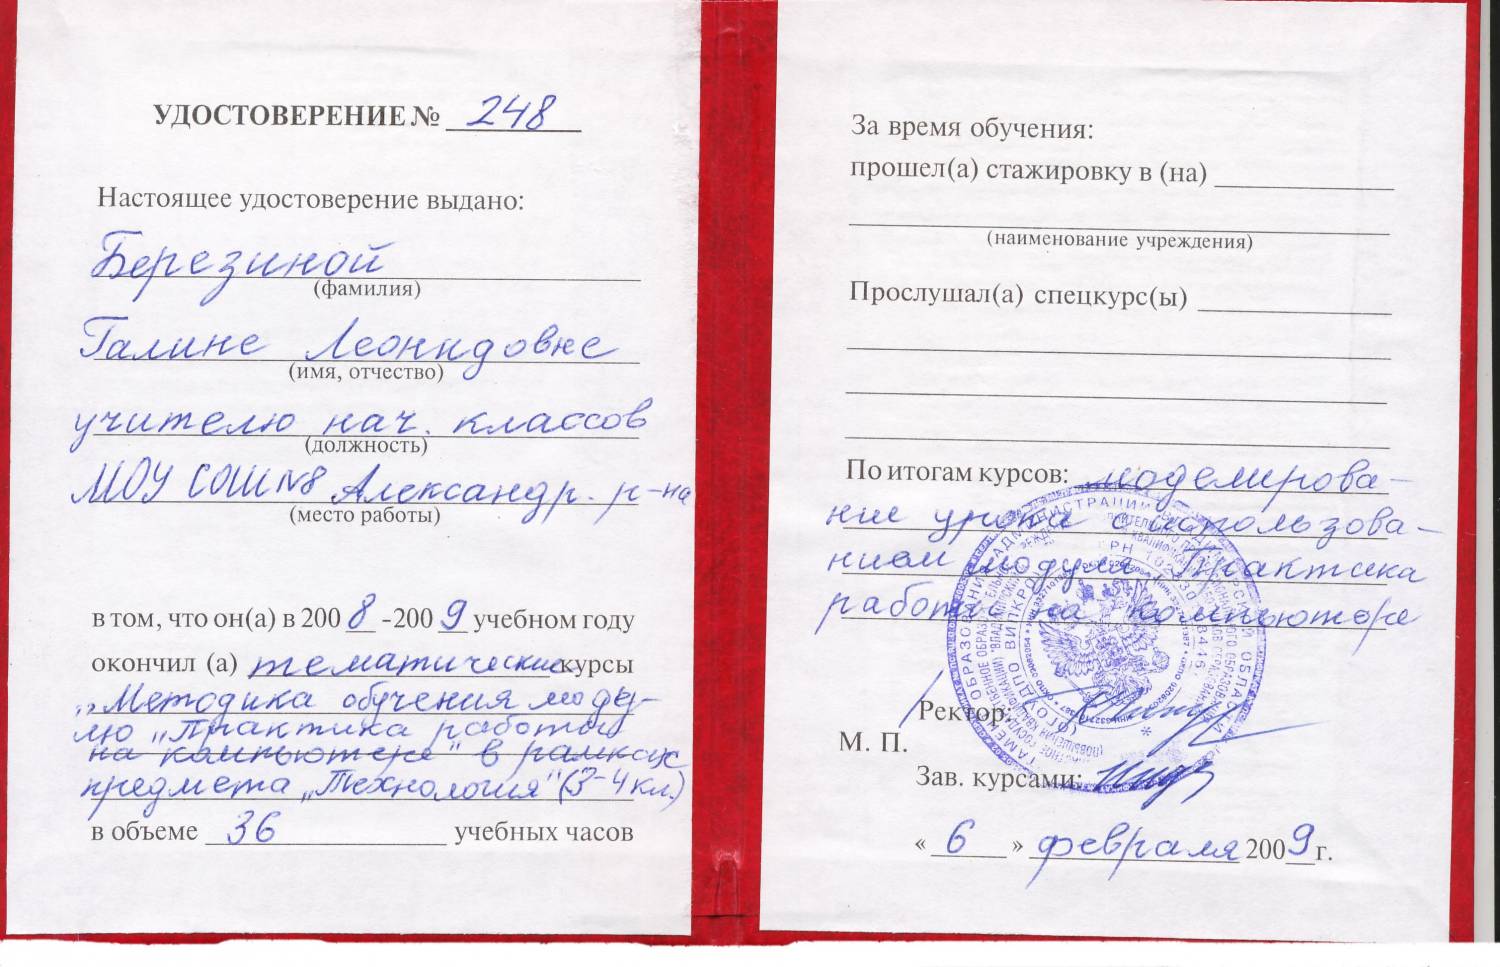 УДОСТОВЕРЕНИЕ № 248
Настоящее удостоверение выдано:
Березиной
(фамилия)
Галине Леонидовне
(имя, отчество)
учителю нач. классов
(должность)
МОУ СОШ №8 Александр. р-на
(место работы)
в том, что он(а) в 2008-2009 учебном году
окончил (а) тематические курсы
„Методика обучения моду-
лю „Практика работы
на компьютере" в рамках
предмета „Технология" (3-4 кл.)
в объеме 36 учебных часов
За время обучения:
прошел(а) стажировку в (на)
(наименование учреждения)
Прослушал(а) спецкурс(ы)
По итогам курсов: моделирова-
ние урока с использова-
нием модуля „Практика
работы на компьютере
Ректор:
М. П.
Зав. курсами:
« 6 » февраля 2009 г.